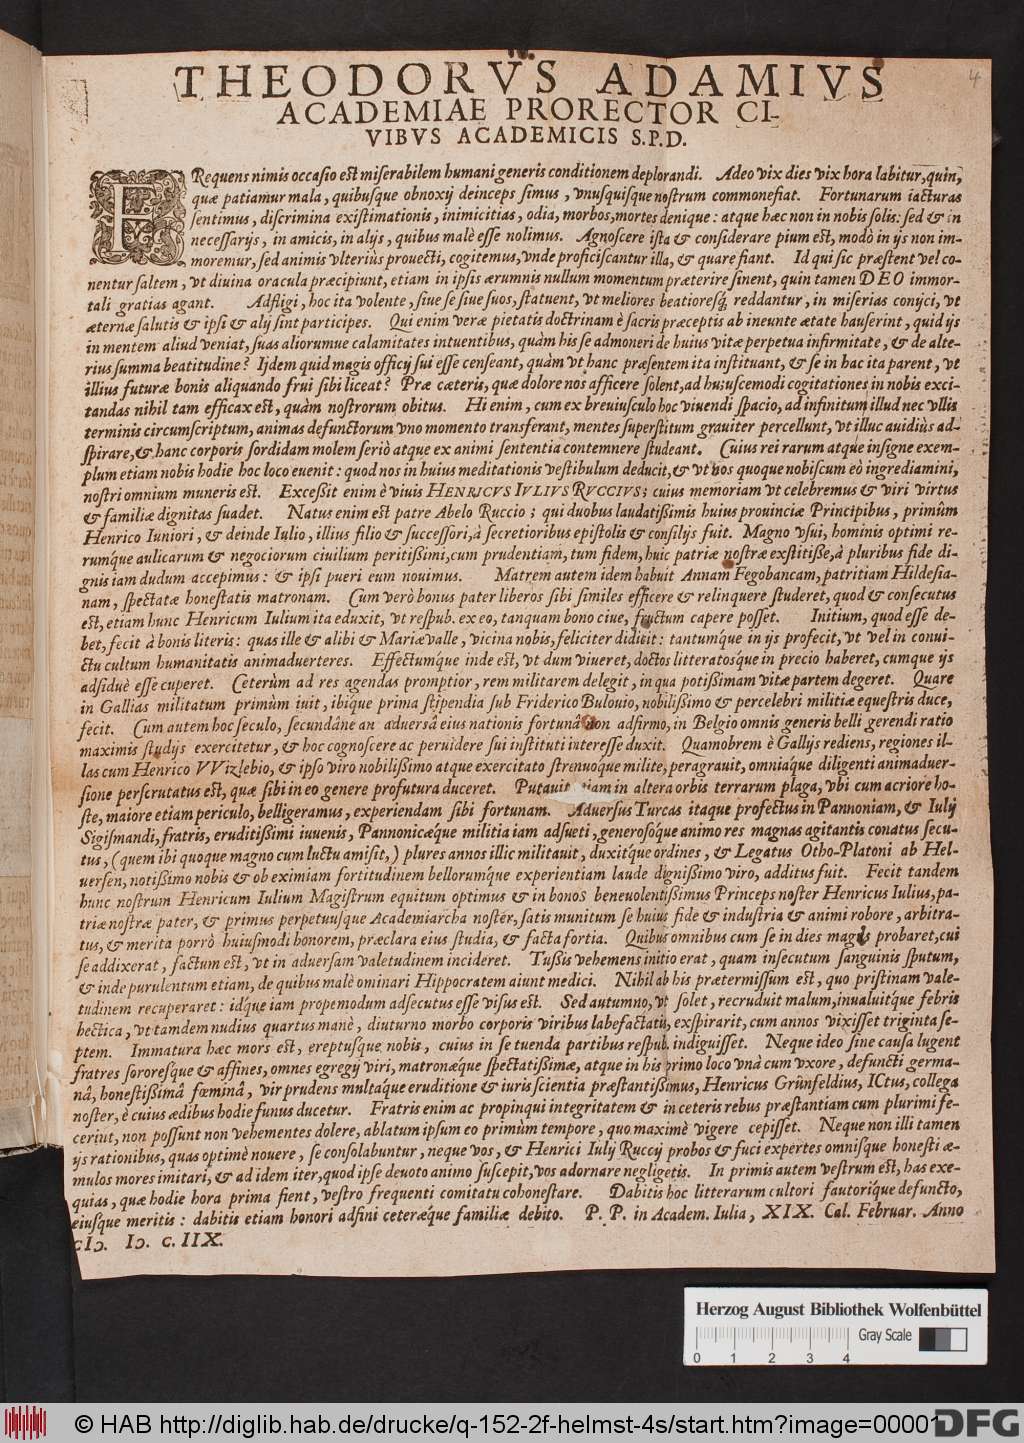 THEODORVS ADAMIVS
4
ACADEMIAE PRORECTOR CI-
VIBVS ACADEMICIS S.P.D.
FRequens nimis occasio est miserabilem humani generis conditionem deplorandi. Adeo vix dies vix hora labitur, quin,
quæ patiamur mala, quibusque obnoxij deinceps simus, vnusquisque nostrum commonefiat. Fortunarum iacturas
sentimus, discrimina existimationis, inimicitias, odia, morbos, mortes denique: atque hæc non in nobis solis: sed & in
necessarijs, in amicis, in alijs, quibus malè esse nolimus. Agnoscere ista & considerare pium est, modò in ijs non im-
moremur, sed animis vlteriùs prouecti, cogitemus, vnde proficiscantur illa, & quare fiant. Id qui sic præstent vel co-
nentur saltem, vt diuina oracula præcipiunt, etiam in ipsis ærumnis nullum momentum præterire sinent, quin tamen DEO immor-
tali gratias agant. Adfligi, hoc ita volente, siue se siue suos, statuent, vt meliores beatioresq́; reddantur, in miserias conijci, vt
æternæ salutis & ipsi & alij sint participes. Qui enim veræ pietatis doctrinam è sacris præceptis ab ineunte ætate hauserint, quid ijs
in mentem aliud veniat, suas aliorumue calamitates intuentibus, quàm his se admoneri de huius vitæ perpetua infirmitate, & de alte-
rius summa beatitudine? Ijdem quid magis officij sui esse censeant, quàm vt hanc præsentem ita instituant, & se in hac ita parent, vt
illius futuræ bonis aliquando frui sibi liceat? Præ cæteris, quæ dolore nos afficere solent, ad huiuscemodi cogitationes in nobis exci-
tandas nihil tam efficax est, quàm nostrorum obitus. Hi enim, cum ex breuiusculo hoc viuendi spacio, ad infinitum illud nec vllis
terminis circumscriptum, animas defunctorum vno momento transferant, mentes superstitum grauiter percellunt, vt illuc auidiùs ad-
spirare, & hanc corporis sordidam molem seriò atque ex animi sententia contemnere studeant. Cuius rei rarum atque insigne exem-
plum etiam nobis hodie hoc loco euenit: quod nos in huius meditationis vestibulum deducit, & vt vos quoque nobiscum eò ingrediamini,
nostri omnium muneris est. Excessit enim è viuis HENRICVS IVLIVS RVCCIVS; cuius memoriam vt celebremus & viri virtus
& familiæ dignitas suadet. Natus enim est patre Abelo Ruccio; qui duobus laudatissimis huius prouinciæ Principibus, primùm
Henrico Iuniori, & deinde Iulio, illius filio & successori, à secretioribus epistolis & consilijs fuit. Magno vsui, hominis optimi re-
rumq́ue aulicarum & negociorum ciuilium peritissimi, cum prudentiam, tum fidem, huic patriæ nostræ exstitisse, à pluribus fide di-
gnis iam dudum accepimus: & ipsi pueri eum nouimus. Matrem autem idem habuit Annam Fegobancam, patritiam Hildesia-
nam, spectatæ honestatis matronam. Cum verò bonus pater liberos sibi similes efficere & relinquere studeret, quod & consecutus
est, etiam hunc Henricum Iulium ita eduxit, vt respub. ex eo, tanquam bono ciue, fructum capere posset. Initium, quod esse de-
bet, fecit à bonis literis: quas ille & alibi & Mariæualle, vicina nobis, feliciter didicit: tantumq́ue in ijs profecit, vt vel in conui-
ctu cultum humanitatis animaduerteres. Effectumq́ue inde est, vt dum viueret, doctos litteratosq́ue in precio haberet, cumque ijs
adsiduè esse cuperet. Ceterùm ad res agendas promptior, rem militarem delegit, in qua potissimam vitæ partem degeret. Quare
in Gallias militatum primùm iuit, ibiq́ue prima stipendia sub Friderico Bulouio, nobilissimo & percelebri militiæ equestris duce,
fecit. Cum autem hoc seculo, secundâne an aduersâ eius nationis fortunâ non adfirmo, in Belgio omnis generis belli gerendi ratio
maximis studijs exercitetur, & hoc cognoscere ac peruidere sui instituti interesse duxit. Quamobrem è Gallijs rediens, regiones il-
las cum Henrico VVizlebio, & ipso viro nobilissimo atque exercitato strenuoque milite, peragrauit, omniaq́ue diligenti animaduer-
sione perscrutatus est, quæ sibi in eo genere profutura duceret. Putauit etiam in altera orbis terrarum plaga, vbi cum acriore ho-
ste, maiore etiam periculo, belligeramus, experiendam sibi fortunam. Aduersus Turcas itaque profectus in Pannoniam, & Iulij
Sigismandi, fratris, eruditissimi iuuenis, Pannonicæque militia iam adsueti, generosoq́ue animo res magnas agitantis conatus secu-
tus, (quem ibi quoque magno cum luctu amisit,) plures annos illic militauit, duxitq́ue ordines, & Legatus Otho-Platoni ab Hel-
uersen, notissimo nobis & ob eximiam fortitudinem bellorumque experientiam laude dignissimo viro, additus fuit. Fecit tandem
hunc nostrum Henricum Iulium Magistrum equitum optimus & in bonos beneuolentissimus Princeps noster Henricus Iulius, pa-
triæ nostræ pater, & primus perpetuusque Academiarcha noster, satis munitum se huius fide & industria & animi robore, arbitra-
tus, & merita porrò huiusmodi honorem, præclara eius studia, & facta fortia. Quibus omnibus cum se in dies magis probaret, cui
se addixerat, factum est, vt in aduersam valetudinem incideret. Tussis vehemens initio erat, quam insecutum sanguinis sputum,
& inde purulentum etiam, de quibus malè ominari Hippocratem aiunt medici. Nihil ab his prætermissum est, quo pristinam vale-
tudinem recuperaret: idq́ue iam propemodum adsecutus esse visus est. Sed autumno, vt solet, recruduit malum, inualuitq́ue febris
hectica, vt tandem nudius quartus manè, diuturno morbo corporis viribus labefactatū, exspirarit, cum annos vixisset triginta se-
ptem. Immatura hæc mors est, ereptusque nobis, cuius in se tuenda partibus respub. indiguisset. Neque ideo sine causa lugent
fratres sororesque & affines, omnes egregij viri, matronæque spectatissimæ, atque in his primo loco vnà cum vxore, defuncti germa-
nâ, honestissimâ fœminâ, vir prudens multaq́ue eruditione & iuris scientia præstantissimus, Henricus Grünfeldius, ICtus, collega
noster, è cuius ædibus hodie funus ducetur. Fratris enim ac propinqui integritatem & in ceteris rebus præstantiam cum plurimi fe-
cerint, non possunt non vehementes dolere, ablatum ipsum eo primùm tempore, quo maximè vigere cepisset. Neque non illi tamen
ijs rationibus, quas optimè nouere, se consolabuntur, neque vos, & Henrici Iulij Ruccij probos & fuci expertes omnisque honesti æ-
mulos mores imitari, & ad idem iter, quod ipse deuoto animo suscepit, vos adornare negligetis. In primis autem vestrum est, has exe-
quias, quæ hodie hora prima fient, vestro frequenti comitatu cohonestare. Dabitis hoc litterarum cultori fautoriq́ue defuncto,
eiusque meritis: dabitis etiam honori adfini ceteræq́ue familiæ debito. P. P. in Academ. Iulia, XIX. Cal. Februar. Anno
cIↄ. Iↄ. c. IIX.
Herzog August Bibliothek Wolfenbüttel
Gray Scale
0 1 2 3 4
© HAB http://diglib.hab.de/drucke/q-152-2f-helmst-4s/start.htm?image=00001
DFG